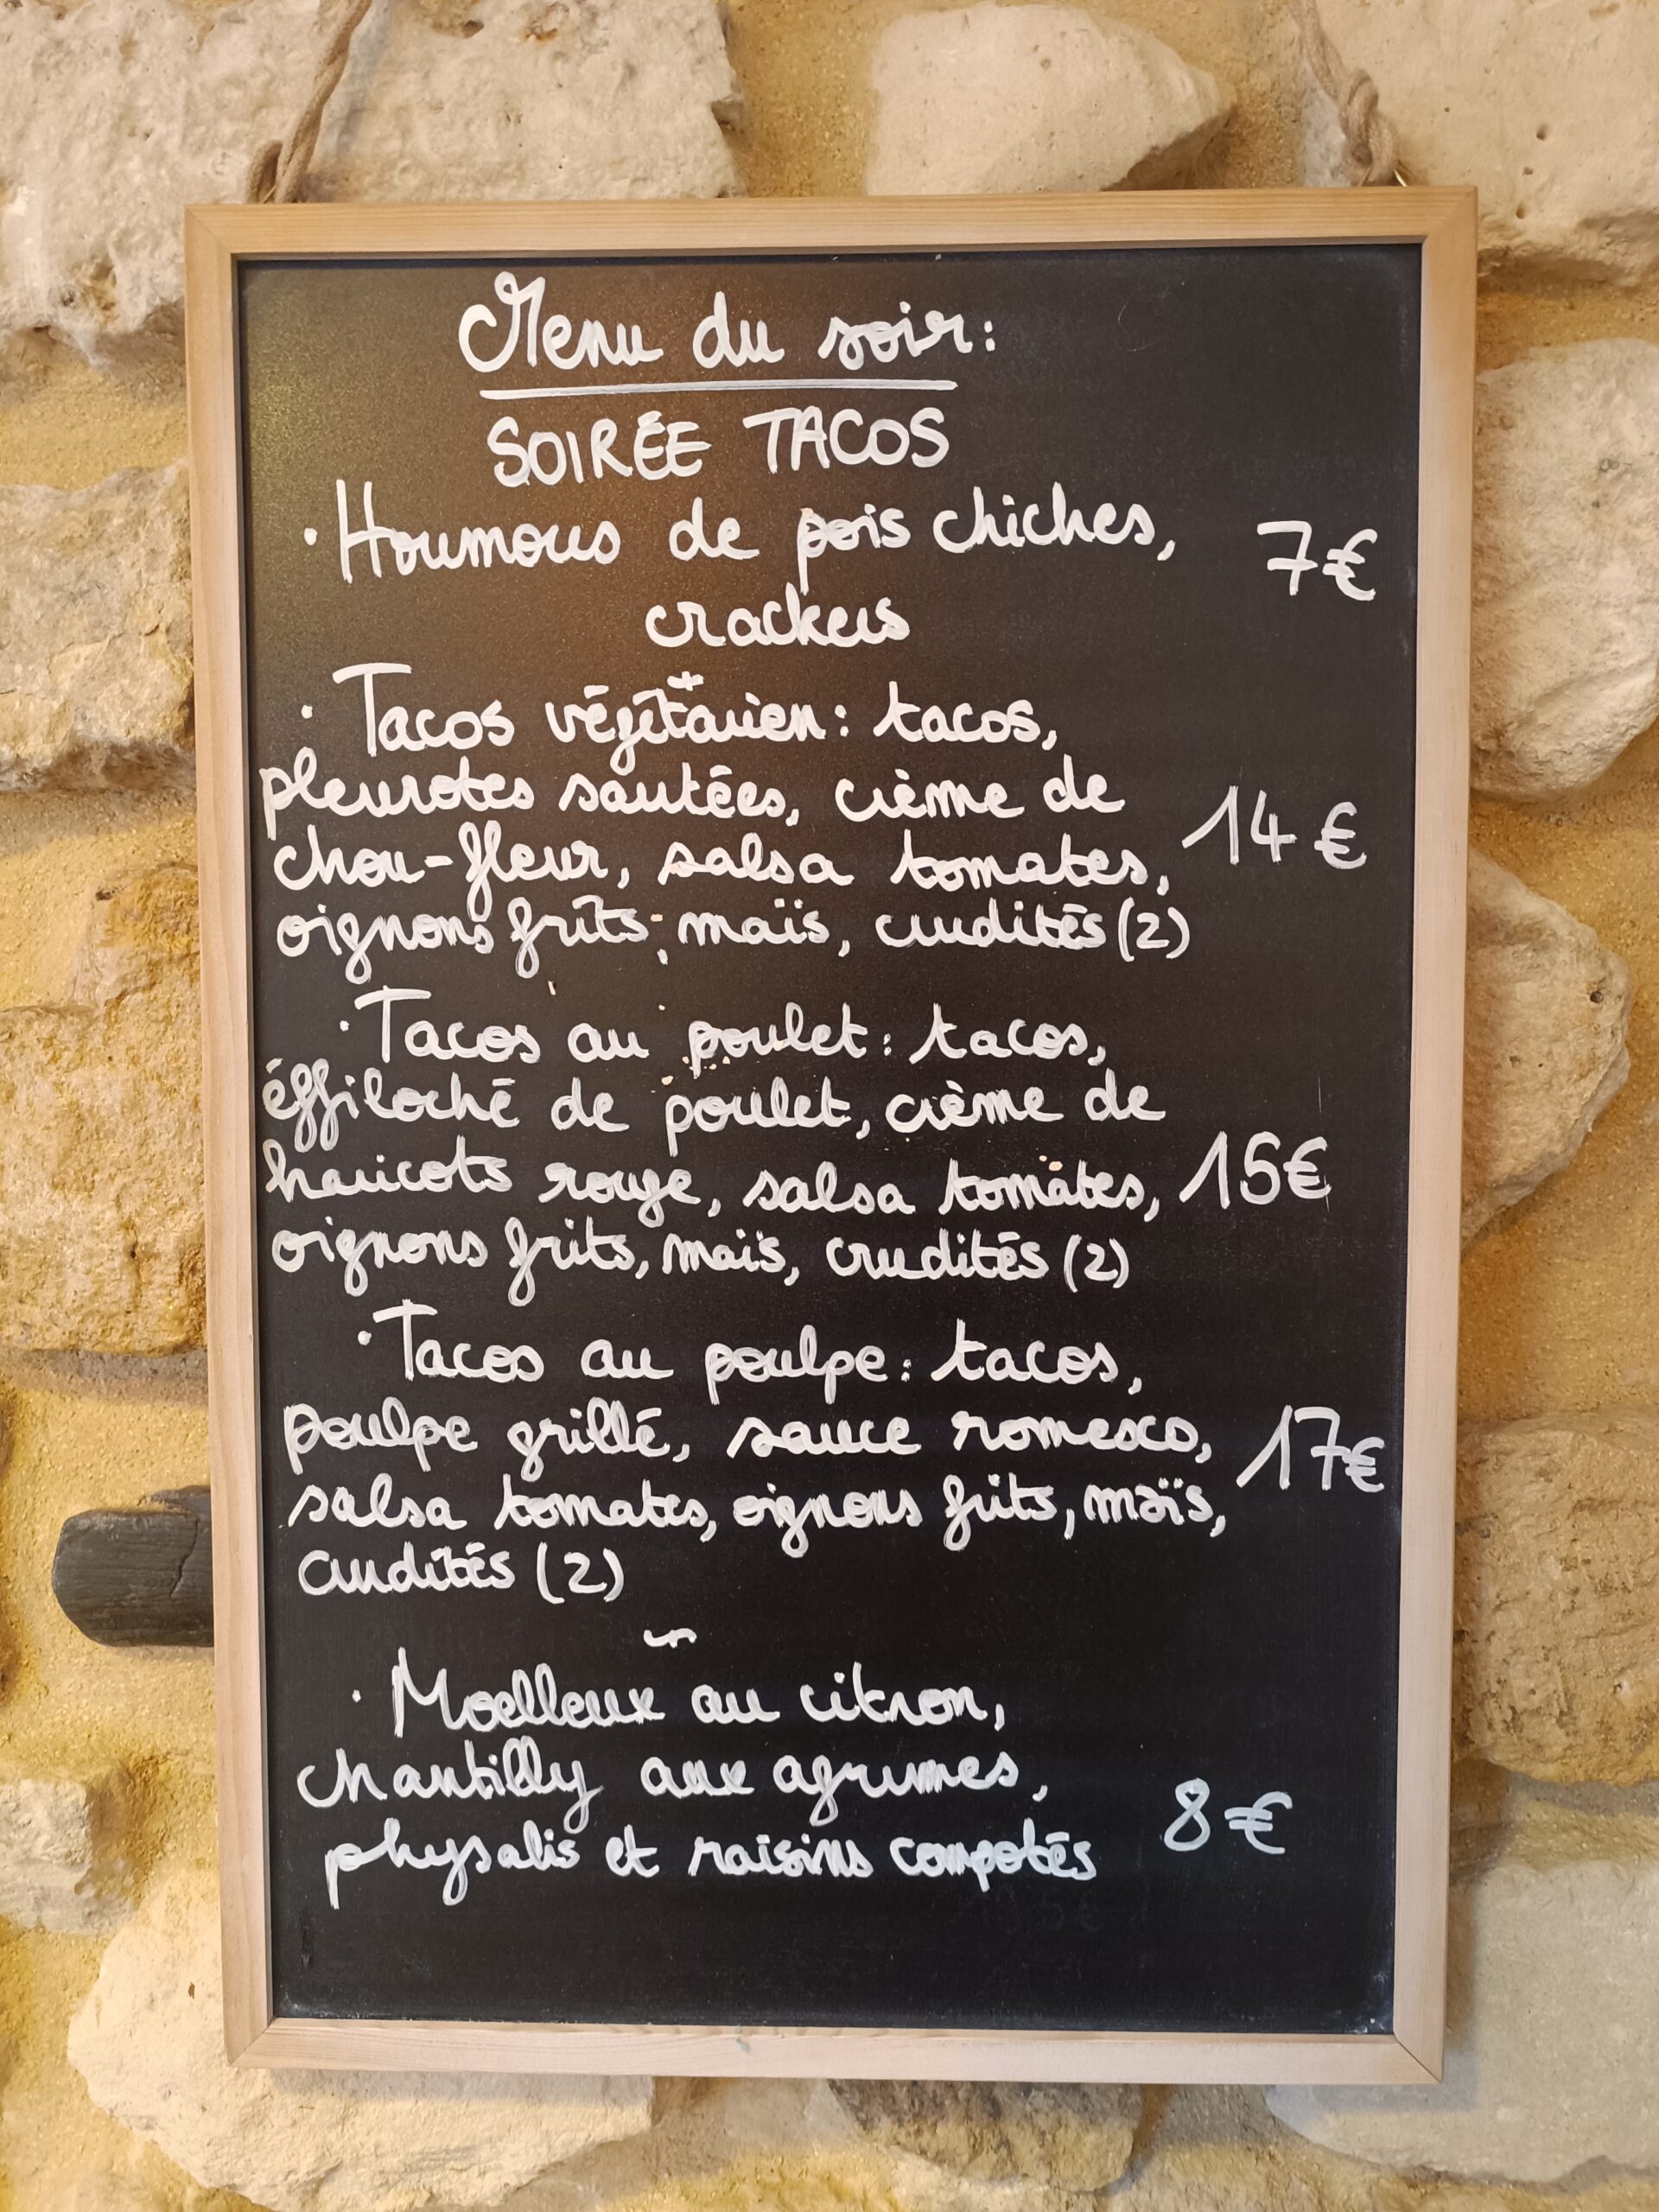 Menu du soir:
SOIRÉE TACOS
· Houmous de pois chiches, 7€
crackers
· Tacos végétarien: tacos,
pleurotes sautées, crème de
chou-fleur, salsa tomates, 14€
oignons frits, maïs, crudités (2)
· Tacos au poulet: tacos,
éffiloché de poulet, crème de
haricots rouge, salsa tomates, 15€
oignons frits, maïs, crudités (2)
· Tacos au poulpe: tacos,
poulpe grillé, sauce romesco, 17€
salsa tomates, oignons frits, maïs,
crudités (2)
~
· Moelleux au citron,
chantilly aux agrumes, 8€
physalis et raisins compotés